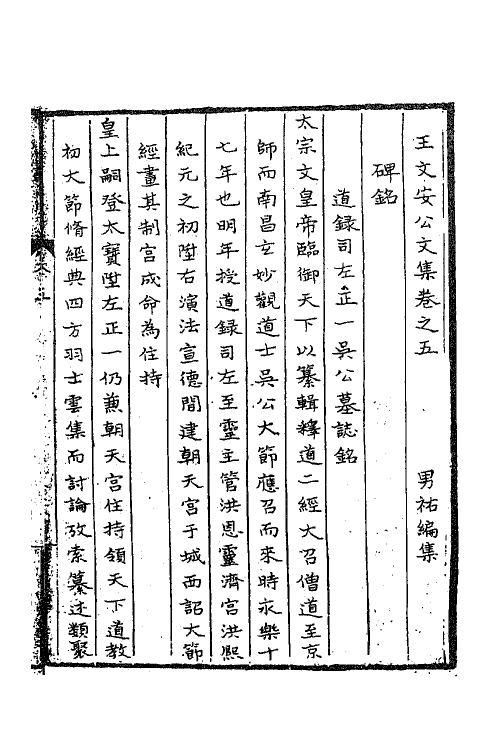 王文安公文集卷之五　男祐編集
碑銘
道録司左正一吳公墓誌銘
太宗文皇帝臨御天下以纂輯釋道二經大召僧道至京
師而南昌玄妙觀道士吳公大節應召而來時永樂十
七年也明年授道録司左至靈主管洪恩靈濟宮洪熙
紀元之初陞右演法宣德間建朝天宮于城西詔大節
經畫其制宮成命為住持
皇上嗣登大寶陞左正一仍兼朝天宮住持領天下道教
初大節脩經典四方羽士雲集而討論攷索纂述類聚